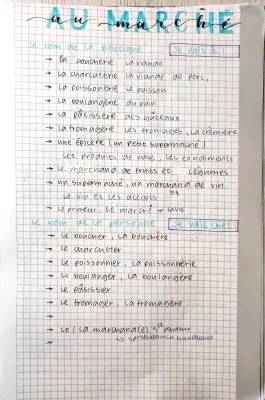 AU MARCHÉ
au marché
le nom de la boutique je vais à:
→ la boucherie la viande
→ la charcuterie la viande de porc,
→ la poissonerie le poisson
→ la boulangerie du pain
→ la pâtisserie des gâteaux
→ la fromagerie les fromages, la crémière
→ une épicerie (un petit supermaché)
les produits de base, les condiments
→ le marchand de fruits et légumes
→ un supermaché, un marchand de vin
le vin et les alcools
→ le primeur, le marché →
le nom de la personne je vais chez:
→ le boucher, la bouchère
→ le charcutier
→ le poissonnier, la poissonnière
→ le boulanger, la boulangère
→ le pâtissier
→ le fromager, la fromagère
→
→ le/la marchand(e)
→